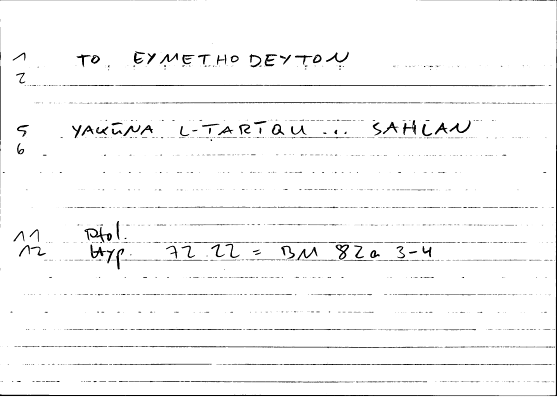 1 TO EYMETHODEYTON
2
5 YAKŪNA L-TARĪQU ... SAHLAN
6
11 Ptol.
12 Hyp. 72 22 = BM 82a 3-4